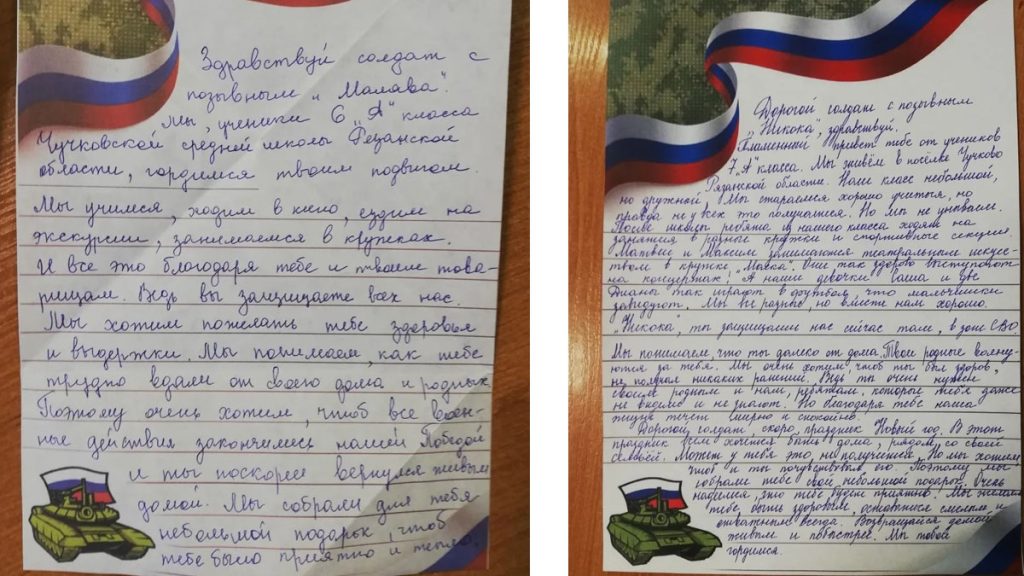 Здравствуй солдат с
позывным „Малава".
Мы, ученики 6 „А" класса
Чучковской средней школы Рязанской
области, гордимся твоим подвигом.
Мы учимся, ходим в кино, ездим на
экскурсии, занимаемся в кружках.
И все это благодаря тебе и твоим това-
рищам. Ведь вы защищаете всех нас.
Мы хотим пожелать тебе здоровья
и выдержки. Мы понимаем, как тебе
трудно вдали от своего дома и родных
Поэтому очень хотим, чтоб все воен-
ные действия закончились нашей Победой
и ты поскорее вернулся живым
домой. Мы собрали для тебя
небольшой подарок, чтоб
тебе было приятно и тепло.
Дорогой солдат с позывным
"Никока", здравствуй.
Пламенный привет тебе от учеников
7 „А" класса. Мы живём в посёлке Чучково
Рязанской области. Наш класс небольшой,
но дружной. Мы стараемся хорошо учиться, но
правда не у всех это получается. Но мы не унываем.
После школы ребята из нашего класса ходят на
занятия в разные кружки и спортивные секции.
Матвей и Максим занимаются театральным искус-
ством в кружке „Маска". Они так здорово выступают
на концертах. А наши девочки Саша и две
Дианы так играют в футбол, что мальчишки
завидуют. Мы все разные, но вместе нам хорошо.
"Никока", ты защищаешь нас сейчас там, в зоне СВО.
Мы понимаем, что ты далеко от дома. Твои родные волну-
ются за тебя. Мы очень хотим, чтоб ты был здоров,
не получал никаких ранений. Ведь ты очень нужен
своим родным и нам, ребятам, которые тебя даже
не видели и не знают. Но благодаря тебе наша
жизнь течёт мирно и спокойно.
Дорогой солдат скоро праздник Новый год. В этот
праздник всем хочется быть дома, рядом, со своей
семьёй. Может у тебя это не получится. Но мы хотим
чтоб и ты почувствовал его. Поэтому мы
собрали тебе свой небольшой подарок. Очень
надеемся, что тебе будет приятно. Мы желаем
тебе быть здоровым, оставаться смелым и
отважным всегда. Возвращайся домой
живым и побыстрее. Мы тобой
гордимся.